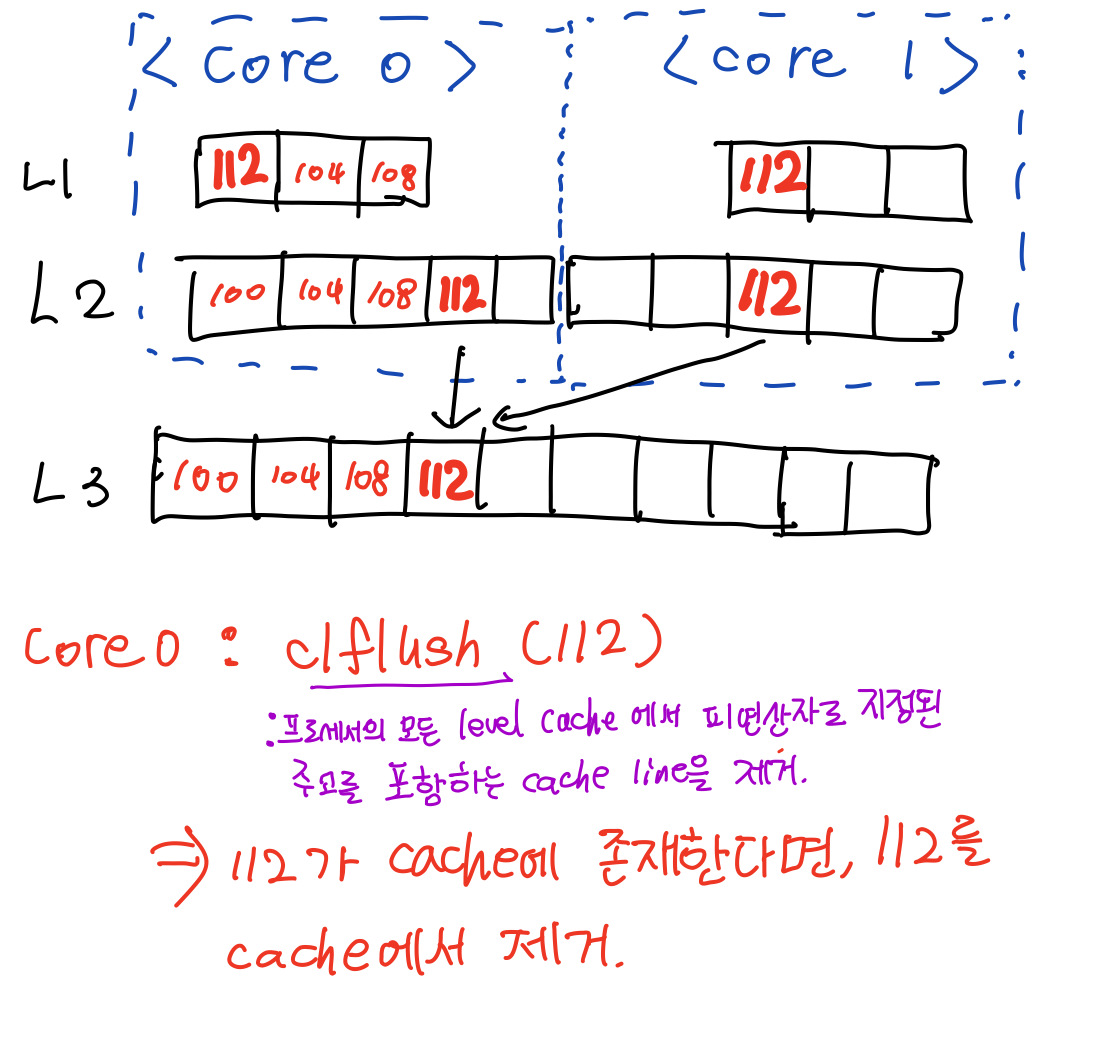 <core 0> <core 1>
L1 112 104 108 112
L2 100 104 108 112 112
L3 100 104 108 112
core0 : clflush (112)
: 프로세서의 모든 level cache에서 피연산자로 지정된
주소를 포함하는 cache line을 제거.
⇒ 112가 cache에 존재한다면, 112를
cache에서 제거.